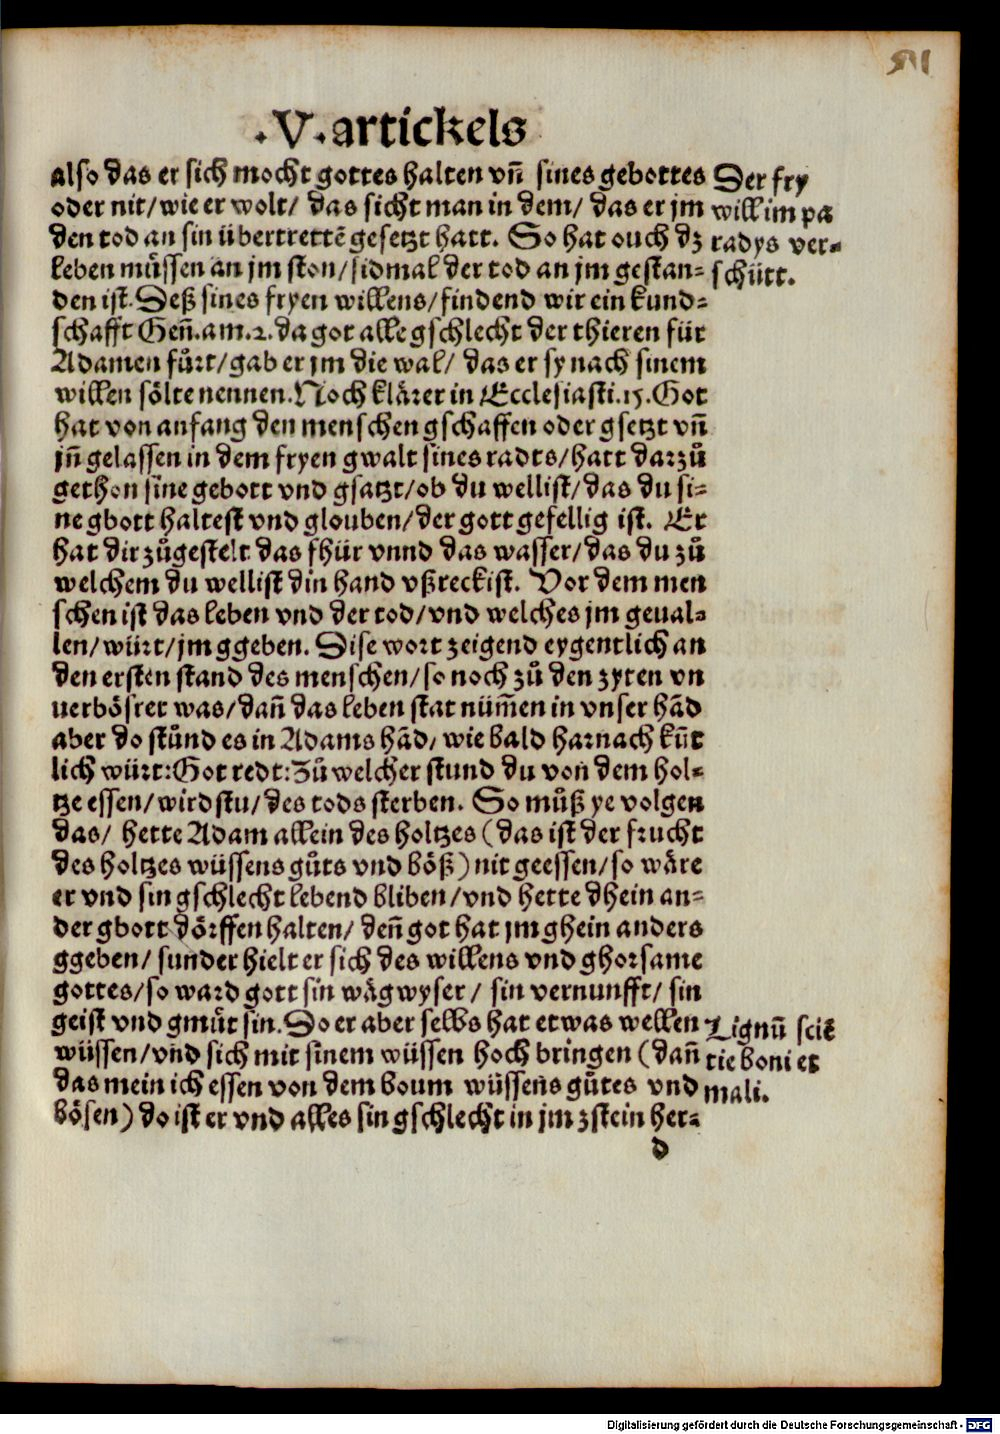 .V. artickels
also das er sich mocht gottes halten vñ sines gebottes
oder nit/ wie er wolt/ das sicht man in dem/ das er jm
den tod an sin übertrettē gesetzt hatt. So hat ouch dz
leben müssen an jm ston/ sidmal der tod an jm gestan-
den ist. Deß sines fryen willens/ findend wir ein kund-
schafft Geñ. am .2. da got alle gschlecht der thieren für
Adamen fůrt/ gab er jm die wal/ das er sy nach sinem
willen sölte nennen. Noch klärer in Ecclesiasti. 15. Got
hat von anfang den menschen gschaffen oder gsetzt vñ
jñ gelassen in dem fryen gwalt sines radts/ hatt darzů
gethon sine gebott vnd gsatzt/ ob du wellist/ das du si-
ne gbott haltest vnd glouben/ der gott gefellig ist. Er
hat dir zůgestelt das fhür vnnd das wasser/ das du zů
welchem du wellist din hand vßreckist. Vor dem men
schen ist das leben vnd der tod/ vnd welches jm geual-
len/ würt/ jm ggeben. Dise wort zeigend eygentlich an
den ersten stand des menschen/ so noch zů den zyten vn
uerbösret was/ dañ das leben stat nüm̃en in vnser hãd
aber do stůnd es in Adams hãd/ wie bald harnach kũt
lich würt: Got redt: Zů welcher stund du von dem hol-
tze essen/ wirdstu/ des tods sterben. So můß ye volgen
das/ hette Adam allein des holtzes (das ist der frucht
des holtzes wüssens gůts vnd böß) nit geessen/ so wäre
er vnd sin gschlecht lebend bliben/ vnd hette dhein an-
der gbott dörffen halten/ deñ got hat jm ghein anders
ggeben/ sunder hielt er sich des willens vnd ghorsame
gottes/ so ward gott sin wägwyser/ sin vernunfft/ sin
geist vnd gmůt sin. So er aber selbs hat etwas wellen
wüssen/ vnd sich mit sinem wüssen hoch bringen (dañ
das mein ich essen von dem boum wüssens gůtes vnd
bösen) do ist er vnd alles sin gschlecht in jm zstein her-
d
Der fry
will im pa
radys ver-
schütt.
Lignũ sciē
tie boni et
mali.
Digitalisierung gefördert durch die Deutsche Forschungsgemeinschaft - DFG